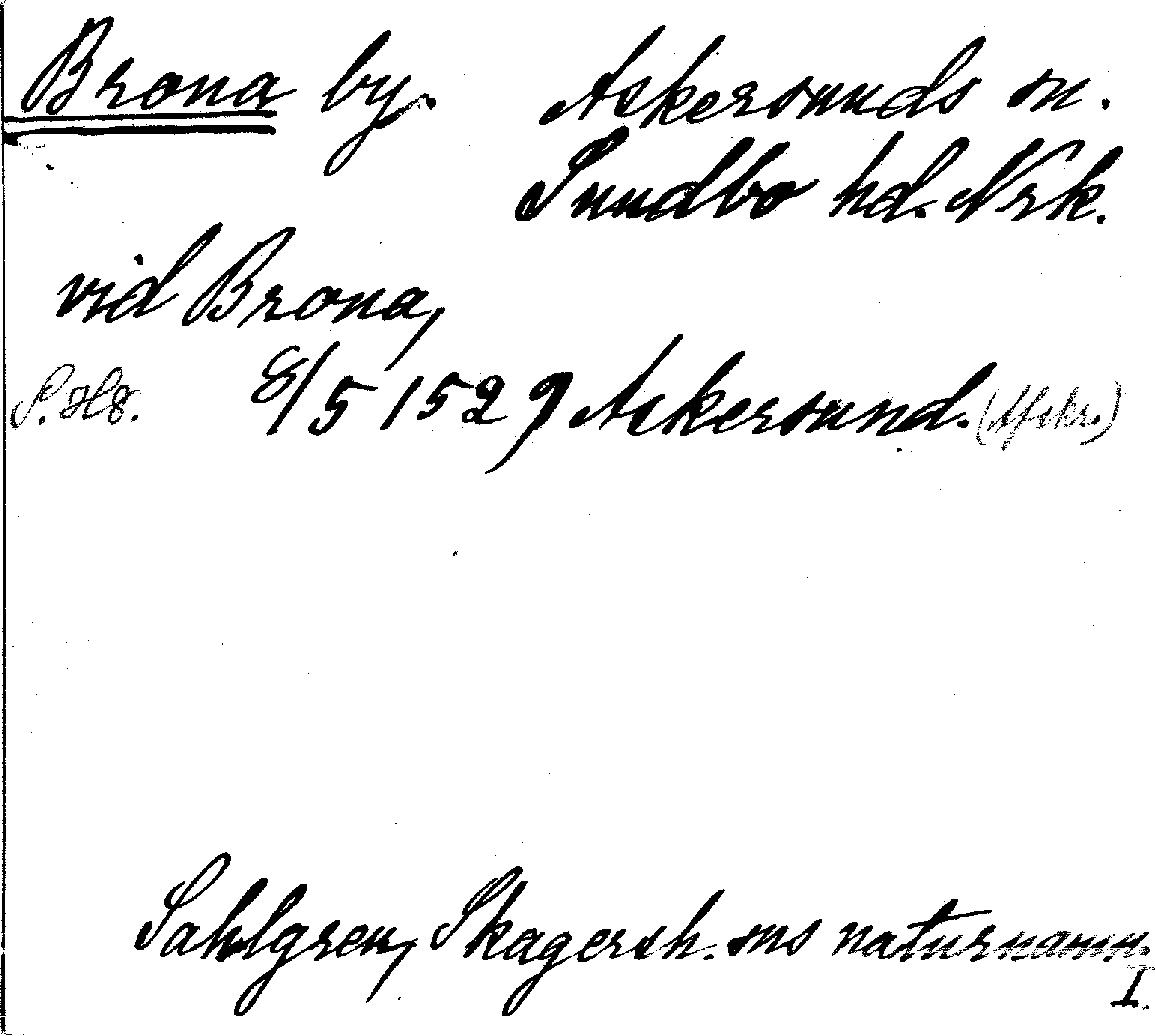 Brona by. Askersunds sn.
Sundbo hd. Nrk.
vid Brona,
8/5 1529 Askersund. (Afskr.)
Sahlgren, Skagersh. sns naturnamn.
I.